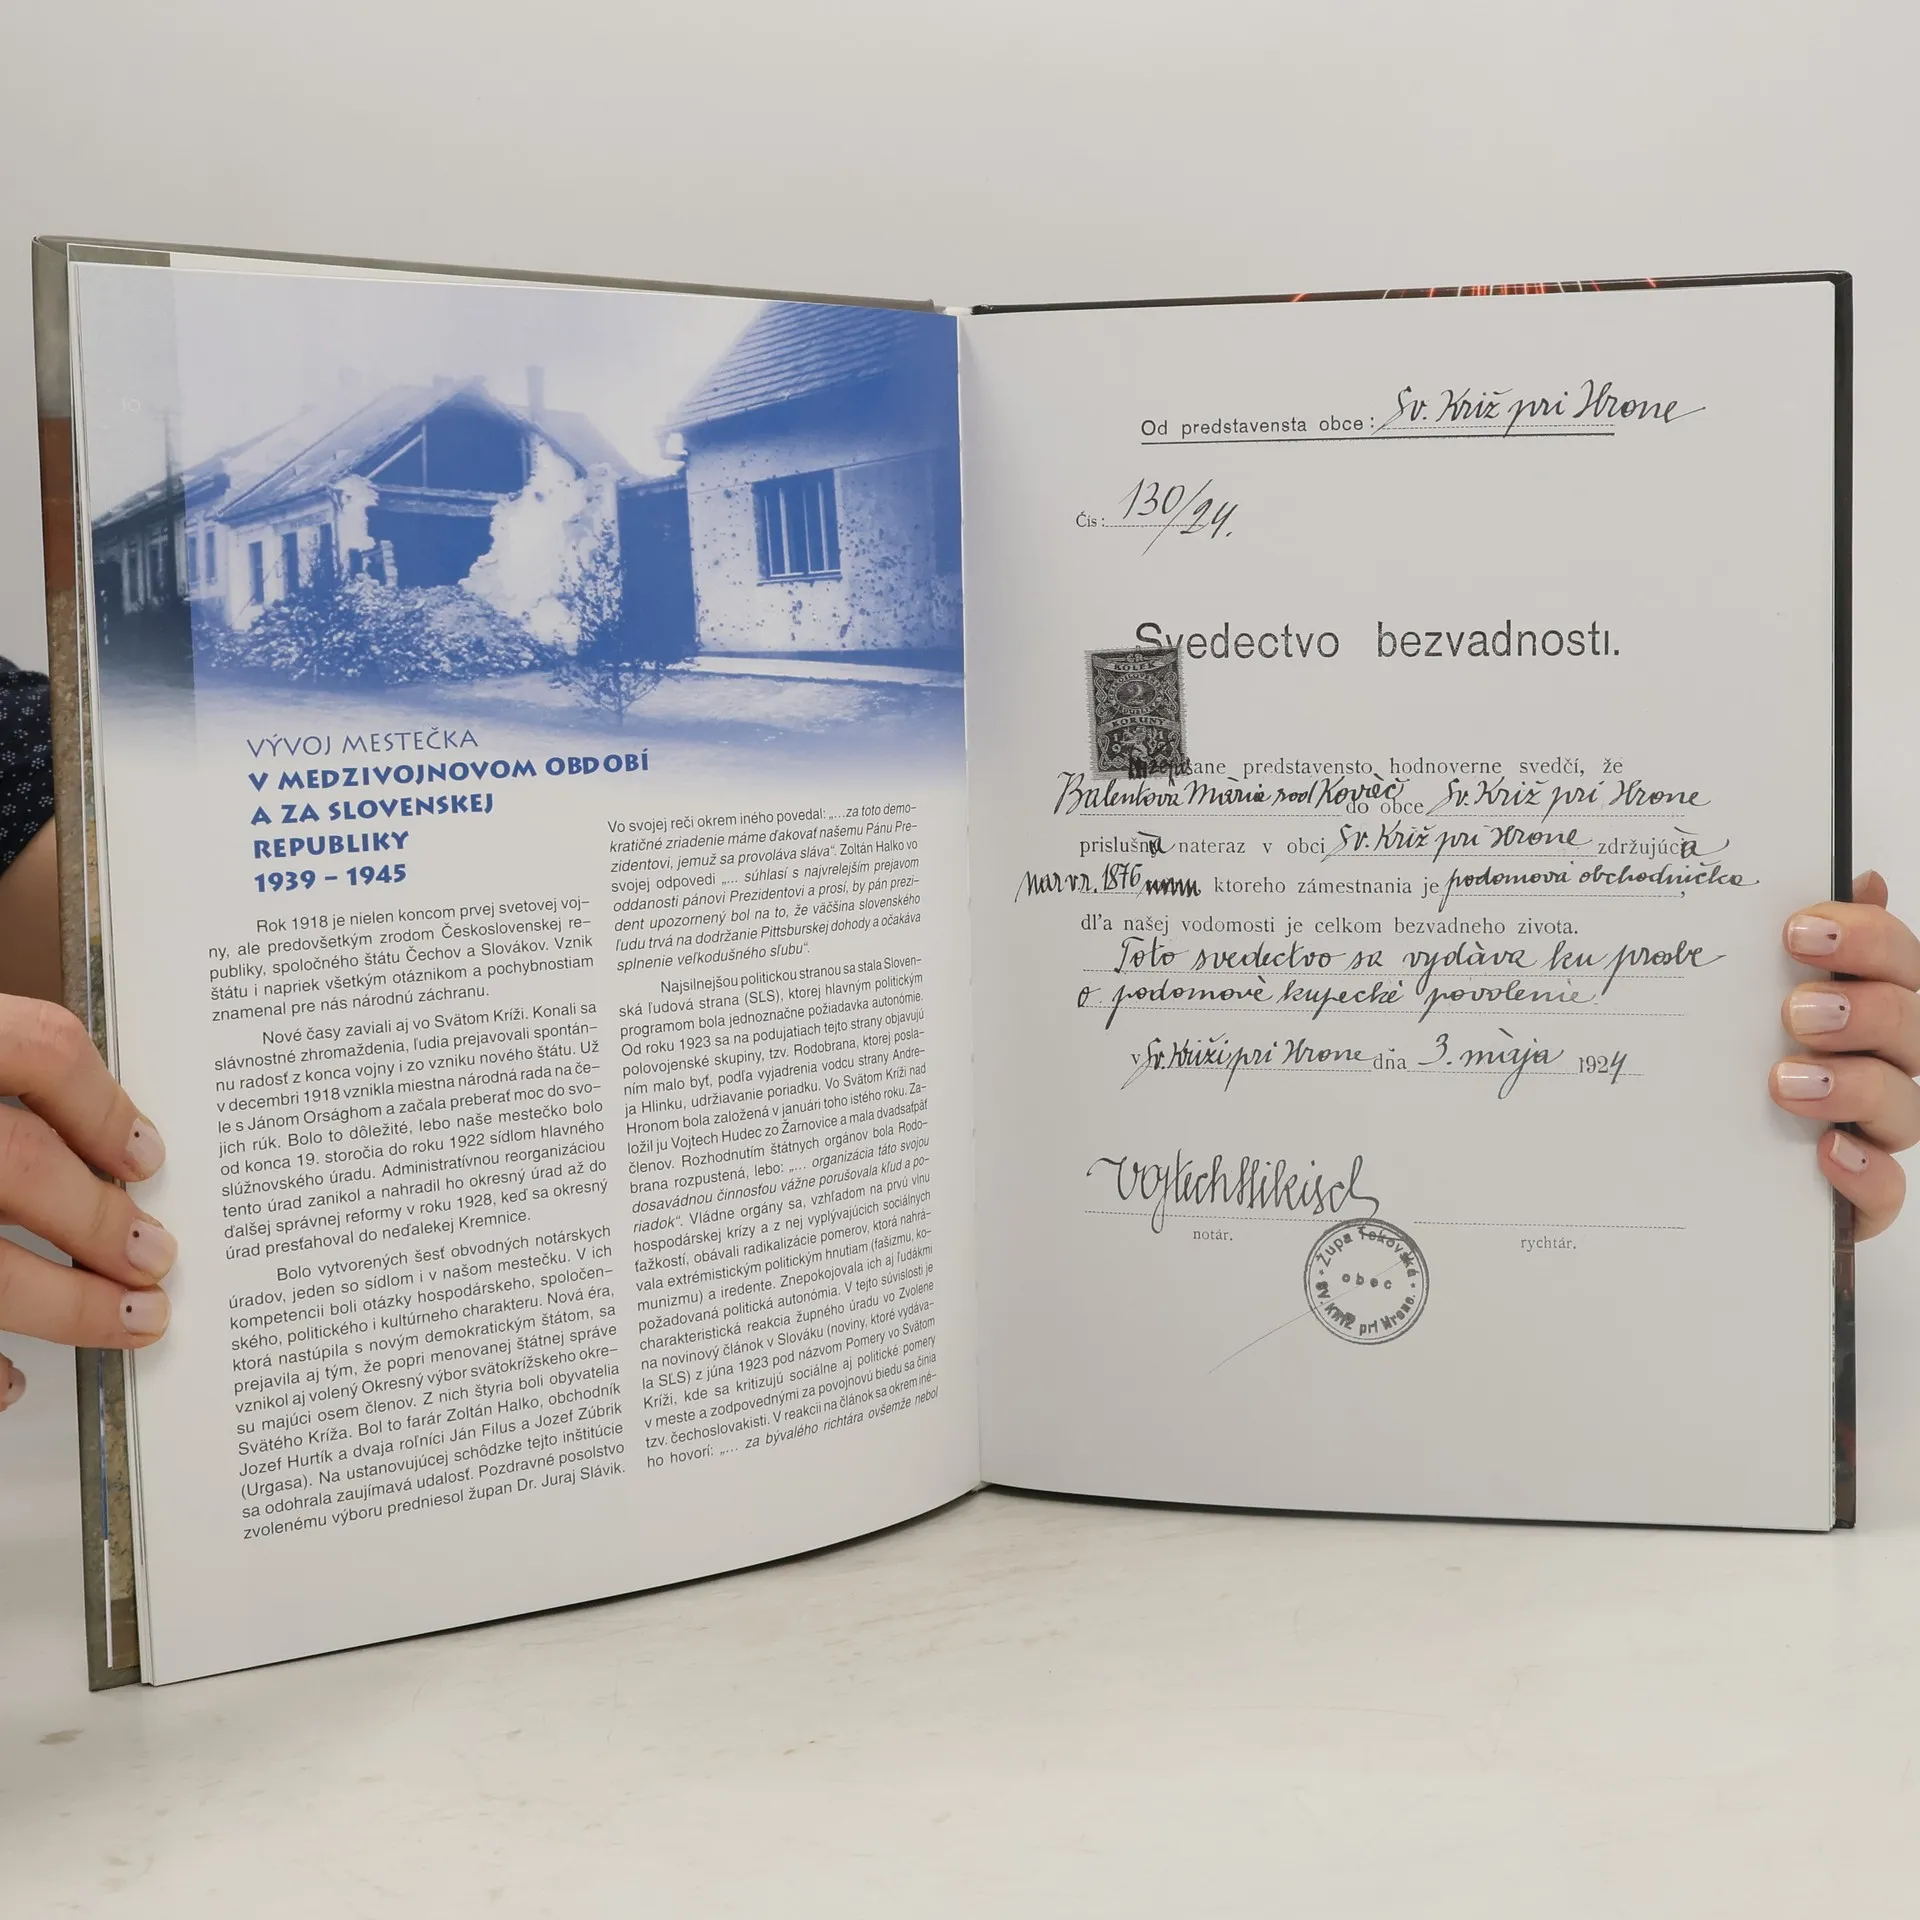 10
VÝVOJ MESTEČKA
V MEDZIVOJNOVOM OBDOBÍ
A ZA SLOVENSKEJ
REPUBLIKY
1939 – 1945
Rok 1918 je nielen koncom prvej svetovej voj-
ny, ale predovšetkým zrodom Československej re-
publiky, spoločného štátu Čechov a Slovákov. Vznik
štátu i napriek všetkým otáznikom a pochybnostiam
znamenal pre nás národnú záchranu.
Nové časy zaviali aj vo Svätom Kríži. Konali sa
slávnostné zhromaždenia, ľudia prejavovali spontán-
nu radosť z konca vojny i zo vzniku nového štátu. Už
v decembri 1918 vznikla miestna národná rada na če-
le s Jánom Orsághom a začala preberať moc do svo-
jich rúk. Bolo to dôležité, lebo naše mestečko bolo
od konca 19. storočia do roku 1922 sídlom hlavného
slúžnovského úradu. Administratívnou reorganizáciou
tento úrad zanikol a nahradil ho okresný úrad až do
ďalšej správnej reformy v roku 1928, keď sa okresný
úrad presťahoval do neďalekej Kremnice.
Bolo vytvorených šesť obvodných notárskych
úradov, jeden so sídlom i v našom mestečku. V ich
kompetencii boli otázky hospodárskeho, spoločen-
ského, politického i kultúrneho charakteru. Nová éra,
ktorá nastúpila s novým demokratickým štátom, sa
prejavila aj tým, že popri menovanej štátnej správe
vznikol aj volený Okresný výbor svätokrížskeho okre-
su majúci osem členov. Z nich štyria boli obyvatelia
Svätého Kríža. Bol to farár Zoltán Halko, obchodník
Jozef Hurtík a dvaja roľníci Ján Filus a Jozef Zúbrik
(Urgasa). Na ustanovujúcej schôdzke tejto inštitúcie
sa odohrala zaujímavá udalosť. Pozdravné posolstvo
zvolenému výboru predniesol župan Dr. Juraj Slávik.
Vo svojej reči okrem iného povedal: „...za toto demo-
kratičné zriadenie máme ďakovať nášemu Pánu Pre-
zidentovi, jemuž sa provoláva sláva“. Zoltán Halko vo
svojej odpovedi „... súhlasí s najvrelejším prejavom
oddanosti pánovi Prezidentovi a prosí, by pán prezi-
dent upozornený bol na to, že väčšina slovenského
ľudu trvá na dodržanie Pittsburskej dohody a očakáva
splnenie veľkodušného sľubu“.
Najsilnejšou politickou stranou sa stala Sloven-
ská ľudová strana (SĽS), ktorej hlavným politickým
programom bola jednoznačne požiadavka autonómie.
Od roku 1923 sa na podujatiach tejto strany objavujú
polovojenské skupiny, tzv. Rodobrana, ktorej posla-
ním malo byť, podľa vyjadrenia vodcu strany Andre-
ja Hlinku, udržiavanie poriadku. Vo Svätom Kríži nad
Hronom bola založená v januári toho istého roku. Za-
ložil ju Vojtech Hudec zo Žarnovice a mala dvadsaťpäť
členov. Rozhodnutím štátnych orgánov bola Rodo-
brana rozpustená, lebo: „... organizácia táto svojou
dosavádnou činnosťou vážne porušovala kľud a po-
riadok“. Vládne orgány sa, vzhľadom na prvú vlnu
hospodárskej krízy a z nej vyplývajúcich sociálnych
ťažkostí, obávali radikalizácie pomerov, ktorá nahrá-
vala extrémistickým politickým hnutiam (fašizmu, ko-
munizmu) a iredente. Znepokojovala ich aj ľudákmi
požadovaná politická autonómia. V tejto súvislosti je
charakteristická reakcia župného úradu vo Zvolene
na novinový článok v Slováku (noviny, ktoré vydáva-
la SĽS) z júna 1923 pod názvom Pomery vo Svätom
Kríži, kde sa kritizujú sociálne aj politické pomery
v meste a zodpovednými za povojnovú biedu sa činia
tzv. čechoslovakisti. V reakcii na článok sa okrem iné-
ho hovorí: „... za bývalého richtára ovšemže nebol
Od predstavensta obce: Sv. Križ pri Hrone
Čís: 130/24.
Svedectvo bezvadnosti.
KOLEK
2
KORUNY
1919
predstavensto hodnoverne svedčí, že
Balentová Mária rod Kováč do obce Sv. Križ pri Hrone
prislušná nateraz v obci Sv. Križ pri Hrone zdržujúcia
nar. v r. 1876 ktoreho zámestnania je podomová obchodníčka
dľa našej vodomosti je celkom bezvadneho života.
Toto svedectvo sa vydáva ku prosbe
o podomové kupecké povolenie.
v Sv. Križi pri Hrone dňa 3. mája 1924
Vojtech Mikisch
notár.
rychtár.
Župa Tekovská
obec
Sv. Kríž pri Hrone.